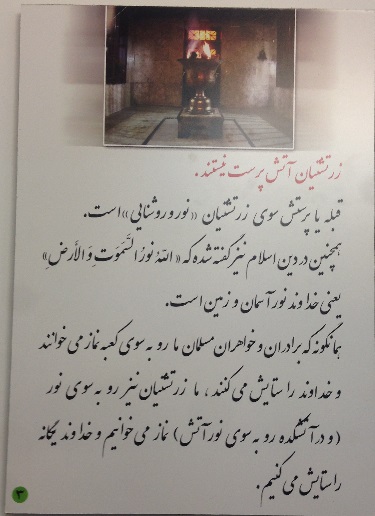 زرتشتیان آتش پرست نیستند.
قبله یا پرستش سوی زرتشتیان «نور و روشنایی» است.
همچنین در دین اسلام نیز گفته شده که «اللهُ نورُ السَّمَوتِ وَ الأرضِ»
یعنی خداوند نور آسمان و زمین است.
همانگونه که برادران و خواهران مسلمان ما رو به سوی کعبه نماز می خوانند
و خداوند را ستایش می کنند، ما زرتشتیان نیز رو به سوی نور
(و در آتشکده رو به سوی نور آتش) نماز می خوانیم و خداوند یگانه
را ستایش می کنیم.
۳